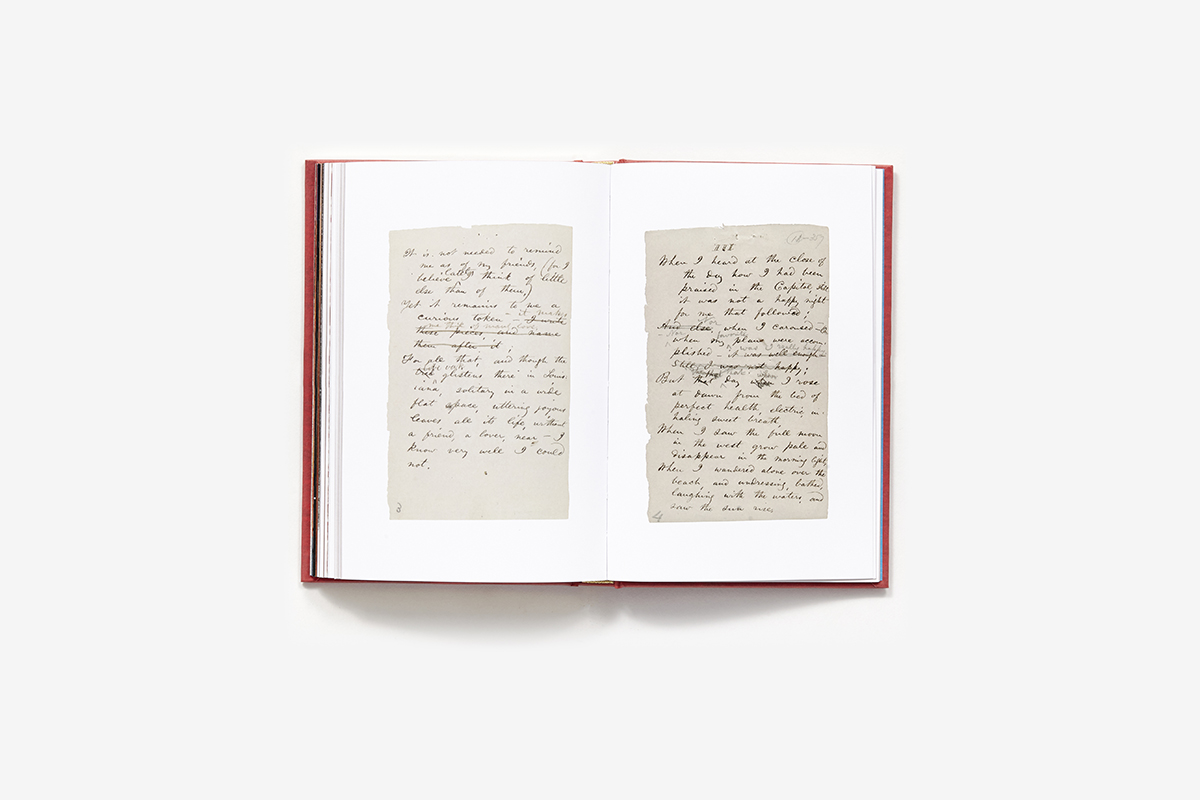 It is not needed to remind
me as of my friends, (for I
believe lately I think of little
else than of them,)
Yet it remains to me a
curious token — it makes
I write
me think of manly love,
these pieces, and name
them after it;
For all that, and though the
live oak
tree glistens there in Louis-
iana, solitary in a wide
flat space, uttering joyous
leaves all its life, without
a friend, a lover, near — I
know very well I could
not.
3
III
When I heard at the close of
the day how I had been
praised in the Capitol, still
it was not a happy night
for me that followed;
And else, when I caroused —
Nor when favorite
when my plans were accom-
plished — was I really happy
it was well enough —
Still I was not happy;
But that day when I rose
at dawn from the bed of
perfect health, electric, in-
haling sweet breath,
When I saw the full moon
in the west grow pale and
disappear in the morning light,
When I wandered alone over the
beach, and undressing, bathed,
laughing with the waters, and
saw the sun rise
4